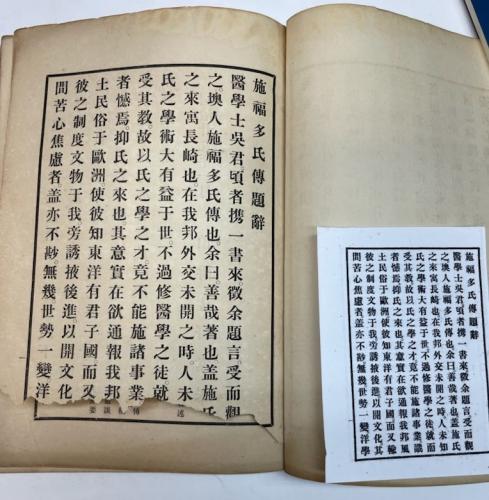 施福多氏傳題辭
醫學士吳君頃者攜一書來徵余題言受而觀
之墺人施福多氏傳也余曰善哉著也蓋施氏
之來寓長崎也在我邦外交未開之時人未
述
氏之學術大有益于世不過修醫學之徒就
受其教故以氏之學之才竟不能施諸事業
者憾焉抑氏之來也其意實在欲通報我邦
土民俗于歐洲使彼知東洋有君子國而又
彼之制度文物于我旁誘掖後進以開文化
要
間苦心焦慮者蓋亦不尠無幾世勢一變洋
施福多氏傳題辭
醫學士吳君頃者攜一書來徵余題言受而觀
之墺人施福多氏傳也余曰善哉著也蓋施氏
之來寓長崎也在我邦外交未開之時人未知
氏之學術大有益于世不過修醫學之徒就而
受其教故以氏之學之才竟不能施諸事業識
者憾焉抑氏之來也其意實在欲通報我邦風
土民俗于歐洲使彼知東洋有君子國而又輸
彼之制度文物于我旁誘掖後進以開文化其
間苦心焦慮者蓋亦不尠無幾世勢一變洋學